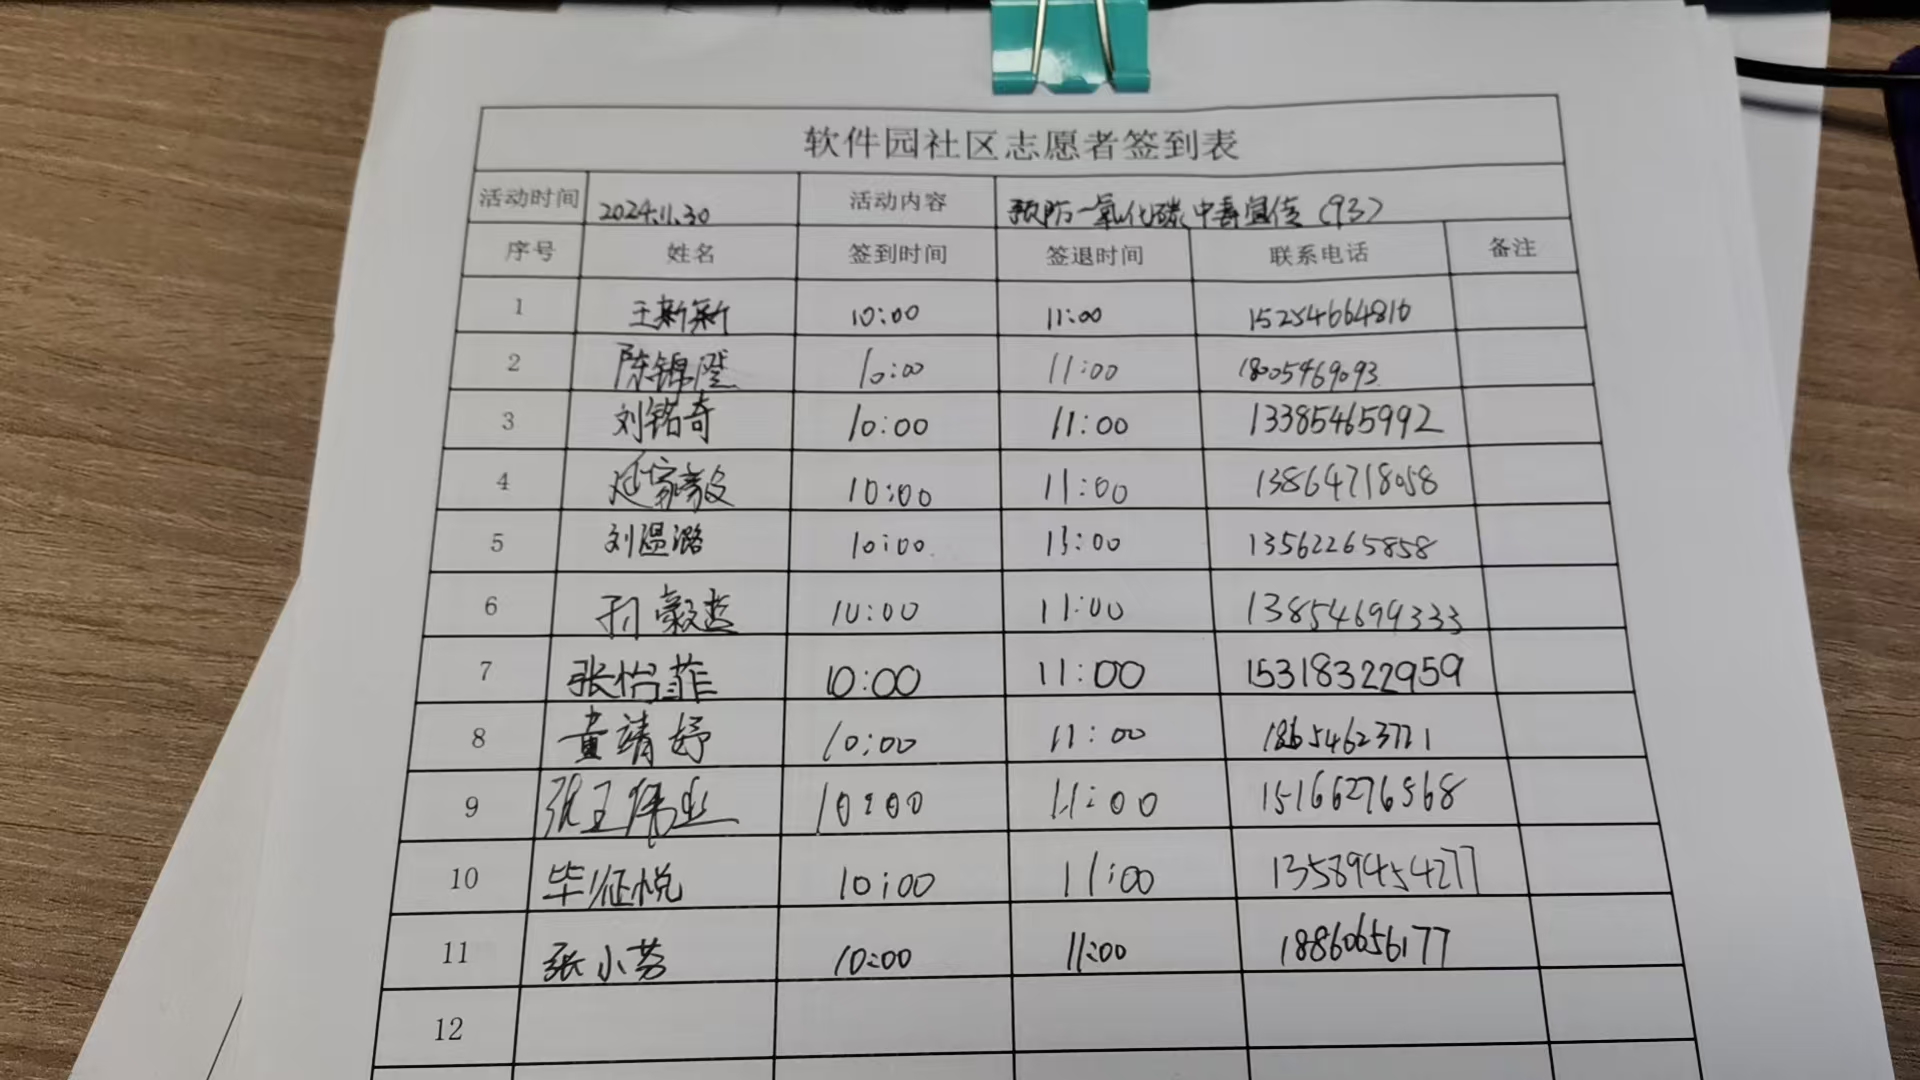 软件园社区志愿者签到表
活动时间 2024.11.30 活动内容 预防一氧化碳中毒宣传（93）
序号 姓名 签到时间 签退时间 联系电话 备注
1 王新新 10:00 11:00 15254664816
2 陈锦澄 10:00 11:00 18005469093
3 刘铭奇 10:00 11:00 13385465992
4 家毅 10:00 11:00 13864718058
5 刘温潞 10:00 11:00 13562265858
6 10:00 11:00 13854699333
7 张怡菲 10:00 11:00 15318322959
8 黄靖妤 10:00 11:00 18654623771
9 张王伟业 10:00 11:00 15166276568
10 毕征悦 10:00 11:00 13589454277
11 张小芬 10:00 11:00 18860656177
12